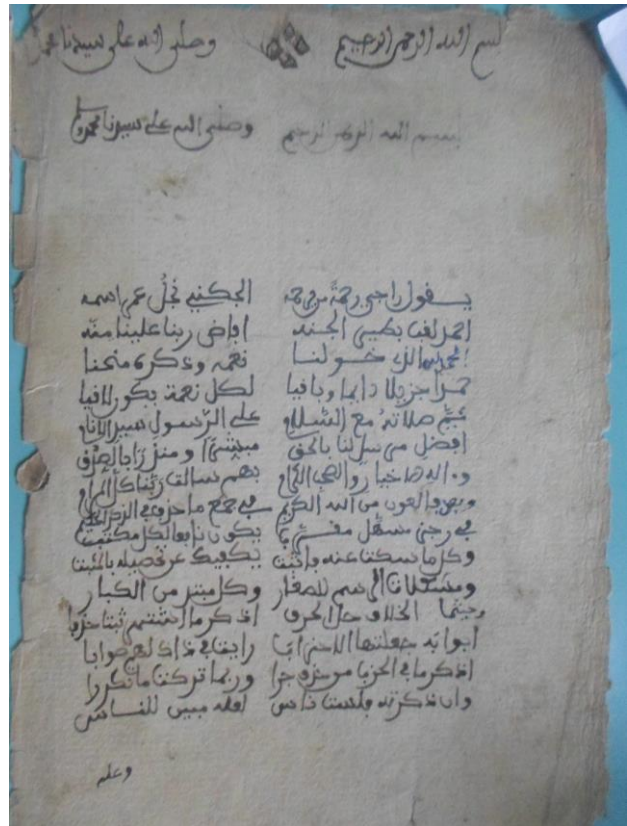 بسم الله الرحمن الرحيم وصلى الله على سيدنا محمد
بسم الله الرحمن الرحيم وصلى الله على سيدنا محمد
يقول راجي رحمة من ربه الجكني نجل عمر اسمه
احمد لقبا بطيب الجنه افاض ربنا علينا منه
الحمد لله الذي خولنا نعمه وذكره منحنا
حمدا جزيلا دايما وبافيا لكل نعمة يكون لافيا
ثم صلاته مع السلام على الرسول سيد الانام
افضل من سل لنا بالحق مبشرا و منذرا بالصدق
وءاله الاخيار والصحب الكرام بهم سالت ربنا كل المرام
وبعد فالعون من الله الكريم في جمع ما حذف في الذكر الحكيم
في رجز مسهل مقرب يكون نابعا لكل مكتب
وكل ما سكت عنه فاثبتا يكفيك عن تحصيله بالمثبتا
للصغار وكل مبتد من الكبار
وحيثما الخلاف حل الحرف اذكر ما اشتهر
ابوابه جعلتها الاحزابا رايت في ذاك لهم صوابا
اذكر ما في الحزب من حذف جرا وربما تركت ما تكررا
وان ذكرته فلست ناس للناس
وعلم